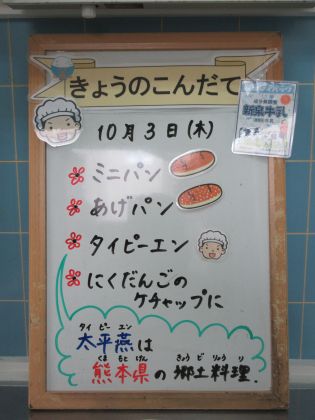 きょうのこんだて
10月3日(木)
ミニパン
あげパン
タイピーエン
にくだんごの
ケチャップに
タイ ピー エン
太平燕は
くま もと けん きょう ど りょう り
熊本県の郷土料理.